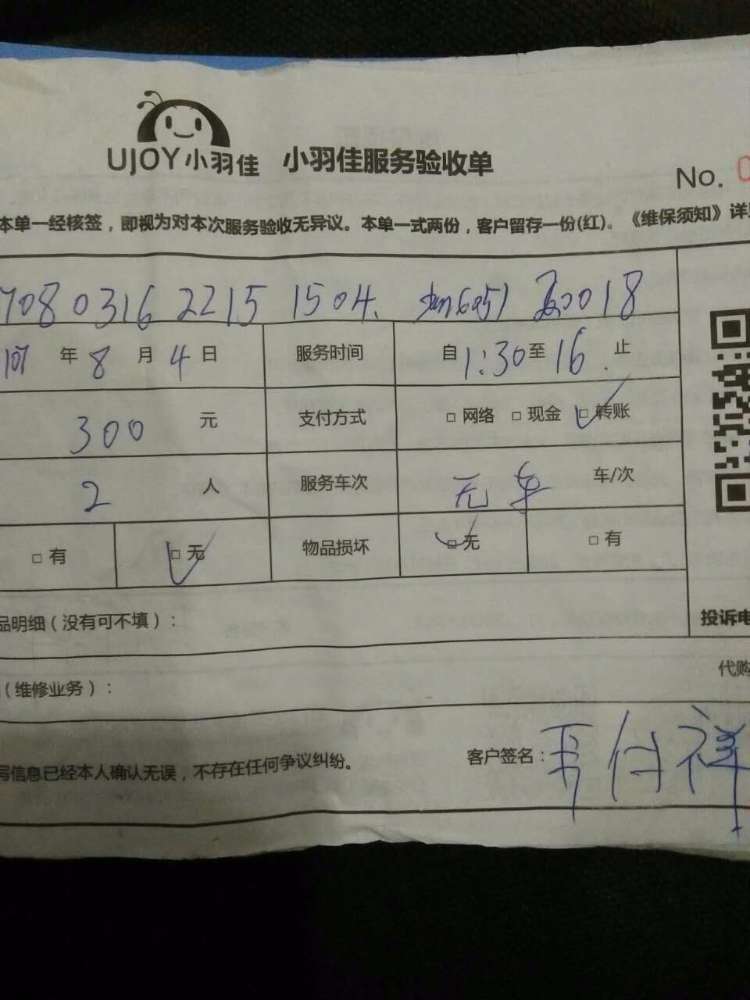 UJOY小羽佳 小羽佳服务验收单
No. 0
本单一经核签，即视为对本次服务验收无异议。本单一式两份，客户留存一份(红)。《维保须知》详
7080316 2215 1504. 0018
年 8 月 4 日 服务时间 自 1:30 至 16. 止
300 元 支付方式 □ 网络 □ 现金 □ 转账
2 人 服务车次 无车 车/次
□ 有 □ 无 物品损坏 □ 无 □ 有
品明细（没有可不填）：
投诉电
（维修业务）：
代购
写信息已经本人确认无误，不存在任何争议纠纷。
客户签名：付祥